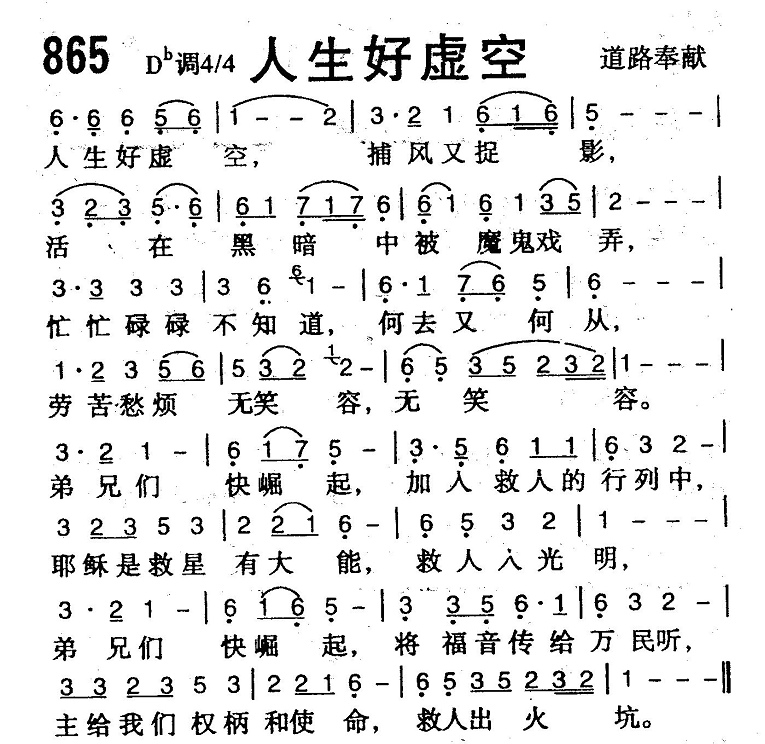 865 Dᵇ调4/4 人生好虚空 道路奉献
6·6 6 5 6 | 1 - - 2 | 3·2 1 6 1 6 | 5 - - - |
人生好虚 空, 捕风又捉 影,
3 2 3 5·6 | 6 1 7 1 7 6 | 6 1 6 1 3 5 | 2 - - - |
活 在 黑 暗 中被 魔鬼戏 弄,
3·3 3 3 | 3 6 6 1 - | 6·1 7 6 5 | 6 - - - |
忙忙碌碌 不知道, 何去又 何 从,
1·2 3 5 6 | 5 3 2 1 2 - | 6 5 3 5 2 3 2 | 1 - - - |
劳苦愁烦 无笑 容, 无 笑 容。
3·2 1 - | 6 1 7 5 - | 3·5 6 1 1 | 6 3 2 - |
弟兄们 快崛 起, 加入救人的行列中,
3 2 3 5 3 | 2 2 1 6 - | 6 5 3 2 | 1 - - - |
耶稣是救星 有大 能, 救人入光 明,
3·2 1 - | 6 1 6 5 - | 3 3 5 6·1 | 6 3 2 - |
弟兄们 快崛 起, 将福音传给万民听,
3 3 2 3 2 5 3 | 2 2 2 1 6 - | 6 5 3 5 2 3 2 | 1 - - - ‖
主给我们权柄和使 命, 救人出火 坑。